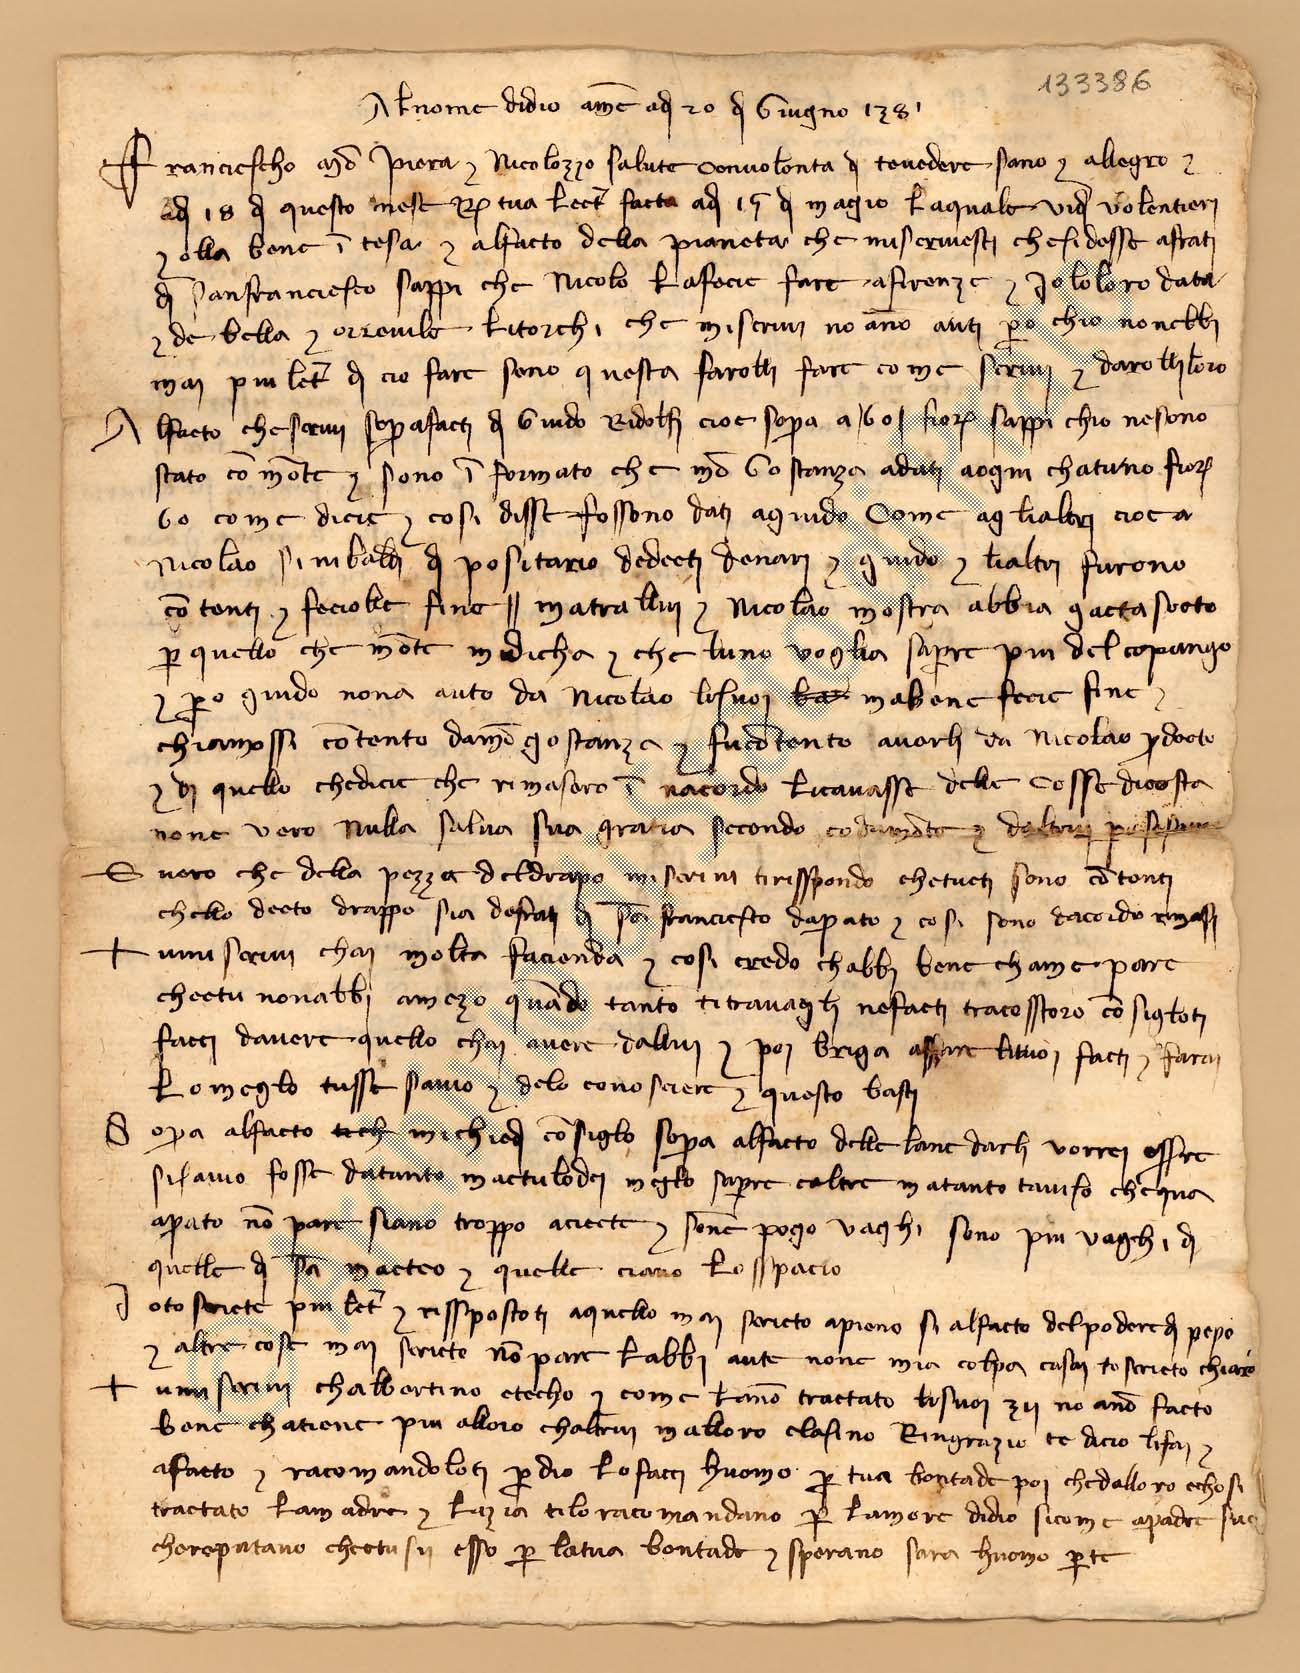 133386
Al nome didio amē adi 20 di Giugno 1381
Franciescho mōa Piera e Nicolozzo salute con volonta di te vedere sano e allegro e
adi 18 di questo mese R tua lect facta adi 15 di magio la quale vidi volentieri
e olla bene ītesa e al facto della pianeta che mi scrivesti che si desse a frati
di san franciesco sappi che Nicolo la fecie fare a firenze e io lo loro data
e de bella e orrevile li torchi che mi scrivi no ano auti po chio non ebbi
mai piu lett di cio fare seno questa farolli fare come scrivi e darolli loro
Al facto che scrivi sopa facti di Guido Ridolfi cioe sopa a 60 fior sappi chio ne sono
stato cō mōte e sono īformato che mōa Gostanza a dati a ogni chatuno fior
60 come dicie e cosi disse fossono dati a guido come agli altri cioe a
Nicolao sinibaldi di positario de decti denari e guido e li altri furono
cōtenti e feciolle fine // ma tra llui e Nicolao mostra abbia
p quello che mōte mi dicha e che luno voglia sapere piu del copangno
e po guido non a auto da Nicolao li suoi ma bene fecie fine e
chiamossi cōtento da mōa gostanza e fu cōtento averli da Nicolao p decto
e di quello che dicie che rimasero ī nacordo li cavasse delle cosse di costa
none vero nulla salva sua gratia secondo
E vero che della pezza del drapo mi scrivi ti risspondo che tucti sono cōtenti
chello decto drappo sia de frati di sā franciescho da pato e cosi sono dacordo rimasi
+ tu mi scrivi chai molta facienda e cosi credo chabbi bene cha me pare
chettu non abbi a mezo quādo tanto ti travagli ne facti tracosstoro cōsigloti
facci davere quello chai avere da llui e poi briga a fare li tuoi facti e farai
lo meglo tusse savio e de lo conosciere e questo basti
Sopa al facto mi chiedi cōsiglo sopa al facto delle lane darli vorrei essere
si savio fosse da tanto ma ctu lo dei meglo sapere caltre ma tanto taviso che qua
a pato nō pare siano troppo aciecte e sonē pogo vaghi sono piu vaghi di
quelle di sā matteo e quelle ciano lo sspacio
Io to scricte piu lett e rissposto ti a quello mai scricto apieno si al facto del podere di pepo
e altre cose mai scricto nō pare labbi aute none mia colpa cusai to scricto chiaro
+ tu mi scrivi chalbertino e techo e come lanō tractato li suoi zii no anō facto
bene cha tiene piu alloro chaltrui ma lloro Ringrazio te dicio li fai e
a facto e racomandoloti p dio lo facci huomo p tua bontade poi che dalloro e chosi
tractato la madre e lizia ti lo racomandano p lamore didio sicome a padre suo
che reputano chettu sii esso p la tua bontade e sperano sara huomo p te